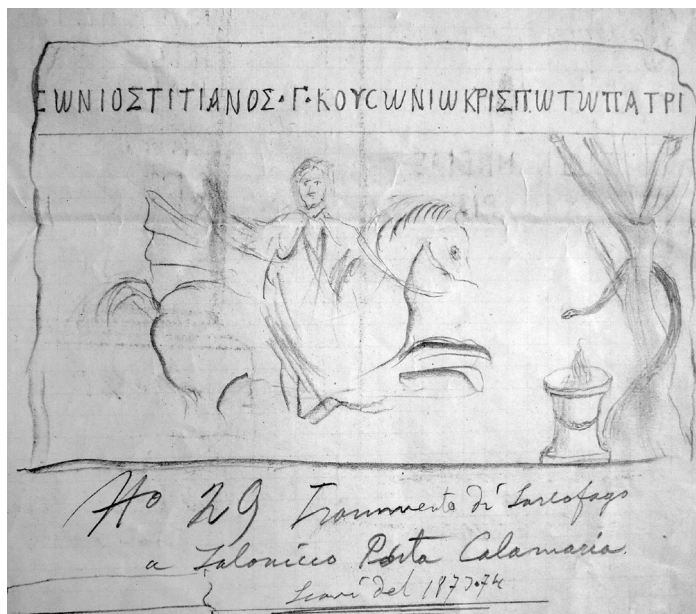 ΣΩΝΙΟΣΤΙΤΙΑΝΟΣ·Γ·ΚΟΥϹΩΝΙΩΚΡΙΣΠΩΤΩΠΑΤΡΙ
No 29 Frammento di Sarcofago
a Salonicco Porta Calamaria
Scavi del 1873-74